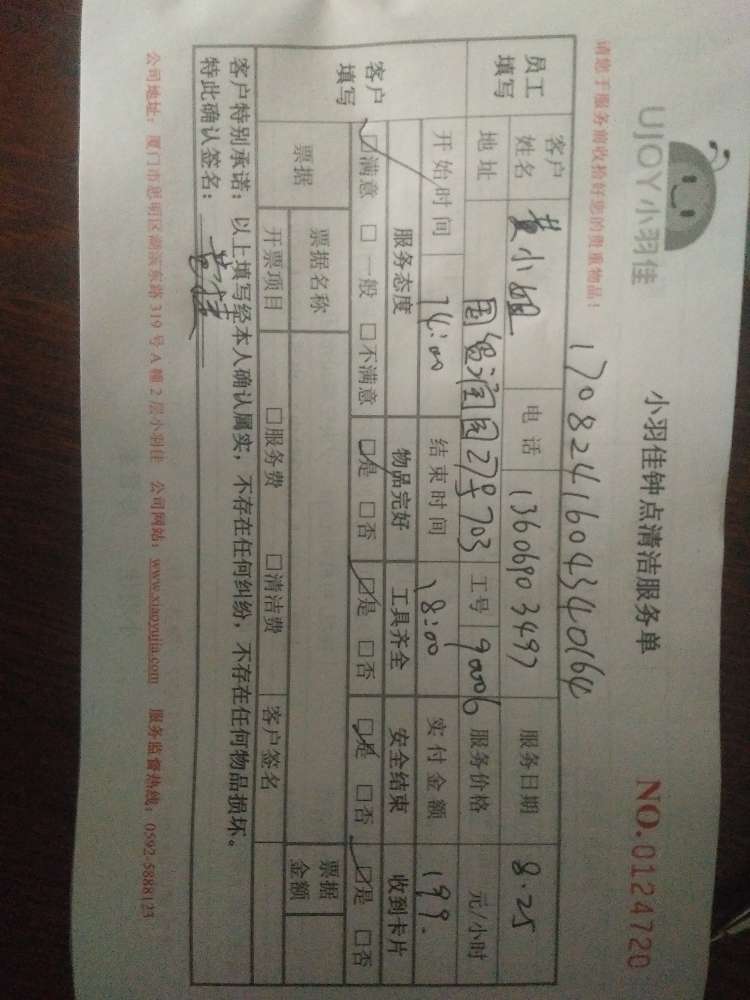 UJOY小羽佳
小羽佳钟点清洁服务单
NO.0124720
请您于服务前收拾好您的贵重物品！
17082416043401 64
员工填写 客户姓名 黄小姐 电话 13606903497 服务日期 8.25
地址 国贸润园27号703 工号 90006 服务价格 元/小时
开始时间 14:00 结束时间 18:00 实付金额 199.
客户填写 服务态度 物品完好 工具齐全 安全结束 收到卡片
☑满意 □一般 □不满意 ☑是 □否 ☑是 □否 ☑是 □否 ☑是 □否
票据 票据名称 票据金额
开票项目 □服务费 □清洁费 客户签名
客户特别承诺：以上填写经本人确认属实，不存在任何纠纷，不存在任何物品损坏。
特此确认签名：
公司地址：厦门市思明区湖滨东路319号A幢2层小羽佳 公司网站：www.xiaoyujia.com 服务监督热线：0592-5888123